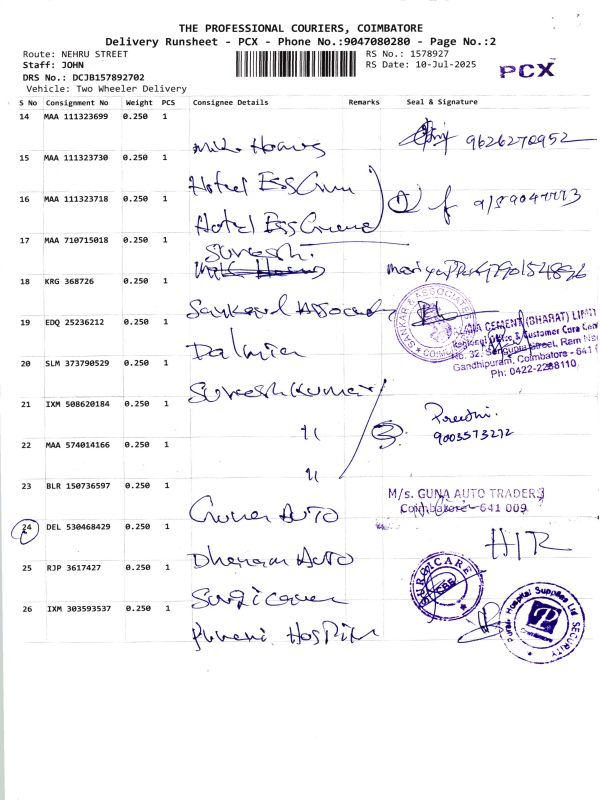 THE PROFESSIONAL COURIERS, COIMBATORE
Delivery Runsheet - PCX - Phone No.:9047080280 - Page No.:2
Route: NEHRU STREET
RS No.: 1578927
Staff: JOHN
RS Date: 10-Jul-2025
DRS No.: DCJB157892702
PCX
Vehicle: Two Wheeler Delivery
S No Consignment No Weight PCS Consignee Details Remarks Seal & Signature
14 MAA 111323699 0.250 1
9626270952
15 MAA 111323730 0.250 1
Hotel Ess
16 MAA 111323718 0.250 1
Hotel Ess
17 MAA 710715018 0.250 1
Suresh.
18 KRG 368726 0.250 1
Sankar & Associates
SANKAR & ASSOCIATES
19 EDQ 25236212 0.250 1
CEMENT (BHARAT) LIMIT
Regional Office & Customer Care Cen
No. 32, Sengupta Street, Ram Na
Gandhipuram, Coimbatore - 641
Ph: 0422-2268110
Dalmia
20 SLM 373790529 0.250 1
Suresh Kumar
21 IXM 508620184 0.250 1
Preethi.
9003573272
22 MAA 574014166 0.250 1
23 BLR 150736597 0.250 1
M/s. GUNA AUTO TRADERS
Coimbatore-641 009
Guna Auto
24 DEL 530468429 0.250 1
H/R
Dharam Auto
25 RJP 3617427 0.250 1
SURGICARE
CBE
Surgicare
26 IXM 303593537 0.250 1
Hospital Supplies
SECURITY
Hospital